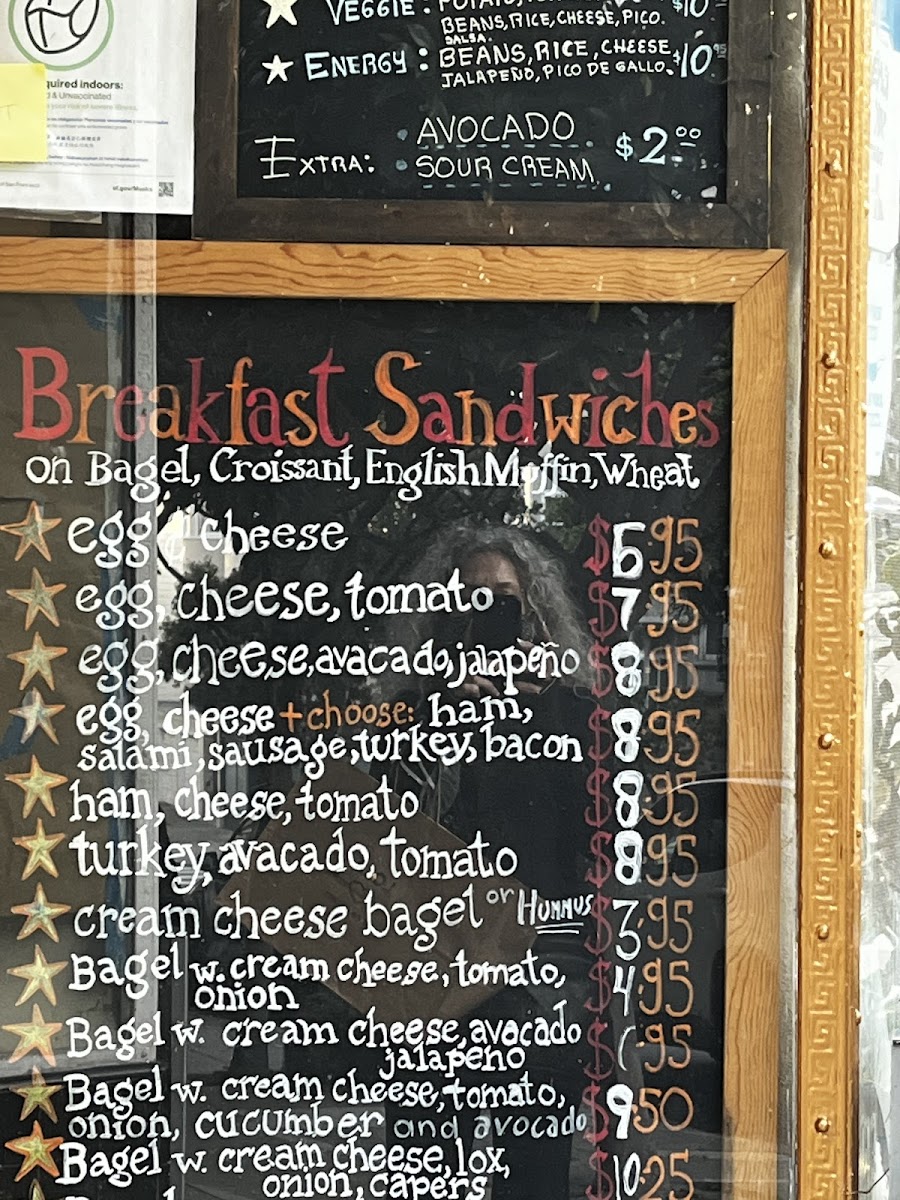 quired indoors:
d & Unvaccinated
VEGGIE:
$10
BEANS, RICE, CHEESE, PICO.
SALSA.
ENERGY: BEANS, RICE, CHEESE, $10.95
JALAPEÑO, PICO DE GALLO.
EXTRA: • AVOCADO
• SOUR CREAM $2.00
Breakfast Sandwiches
on Bagel, Croissant, English Muffin, Wheat
egg, cheese $6.95
egg, cheese, tomato $7.95
egg, cheese, avacado, jalapeño $8.95
egg, cheese + choose: ham,
salami, sausage, turkey, bacon $8.95
ham, cheese, tomato $8.95
turkey, avacado, tomato $8.95
cream cheese bagel or HUMMUS $3.95
Bagel w. cream cheese, tomato,
onion $4.95
Bagel w. cream cheese, avocado
jalapeño $ .95
Bagel w. cream cheese, tomato,
onion, cucumber and avocado $9.50
Bagel w. cream cheese, lox,
onion, capers $10.25